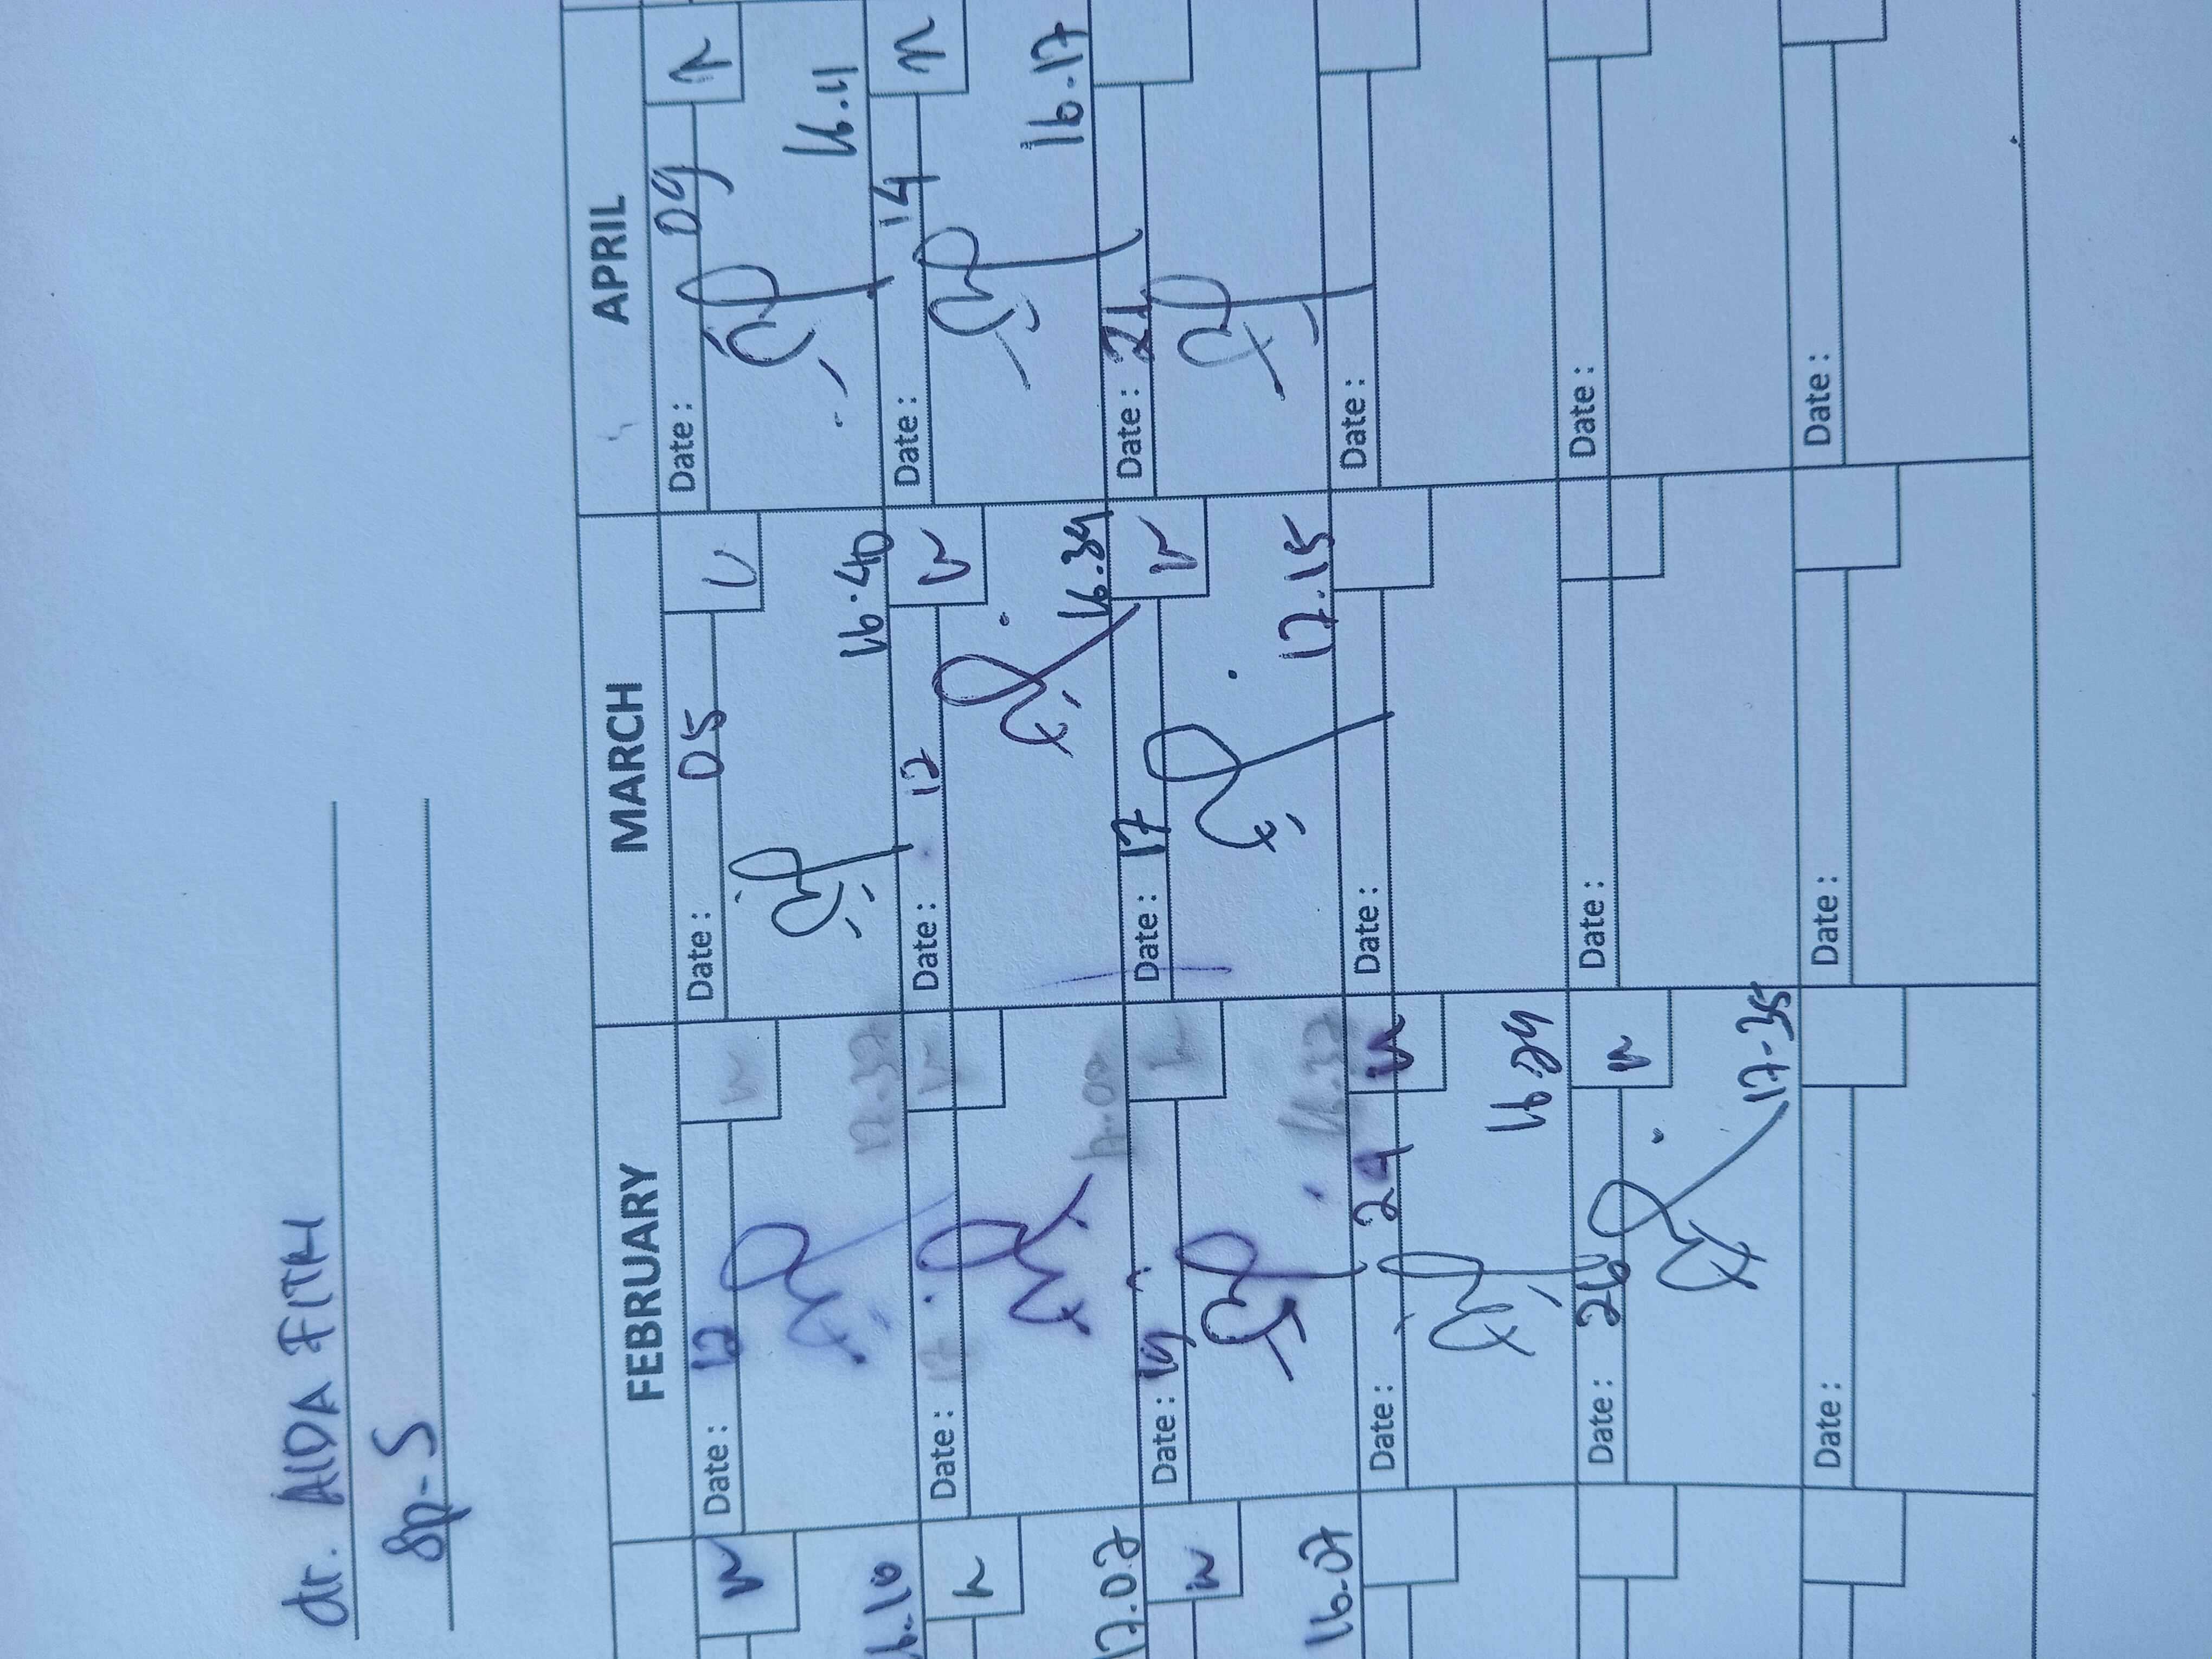 dr. AIDA FITRI
Sp-S
FEBRUARY MARCH APRIL
Date: 12 Date: 05 Date: 09
6.10 17.37 16.40 16.11
Date: 17 Date: 12 Date: 14
17.02 17.00 16.39 16.17
Date: 19 Date: 17 Date: 21
16.07 16.37 17.15
Date: 24 Date: Date:
16.29
Date: 26 Date: Date:
17.35
Date: Date: Date: